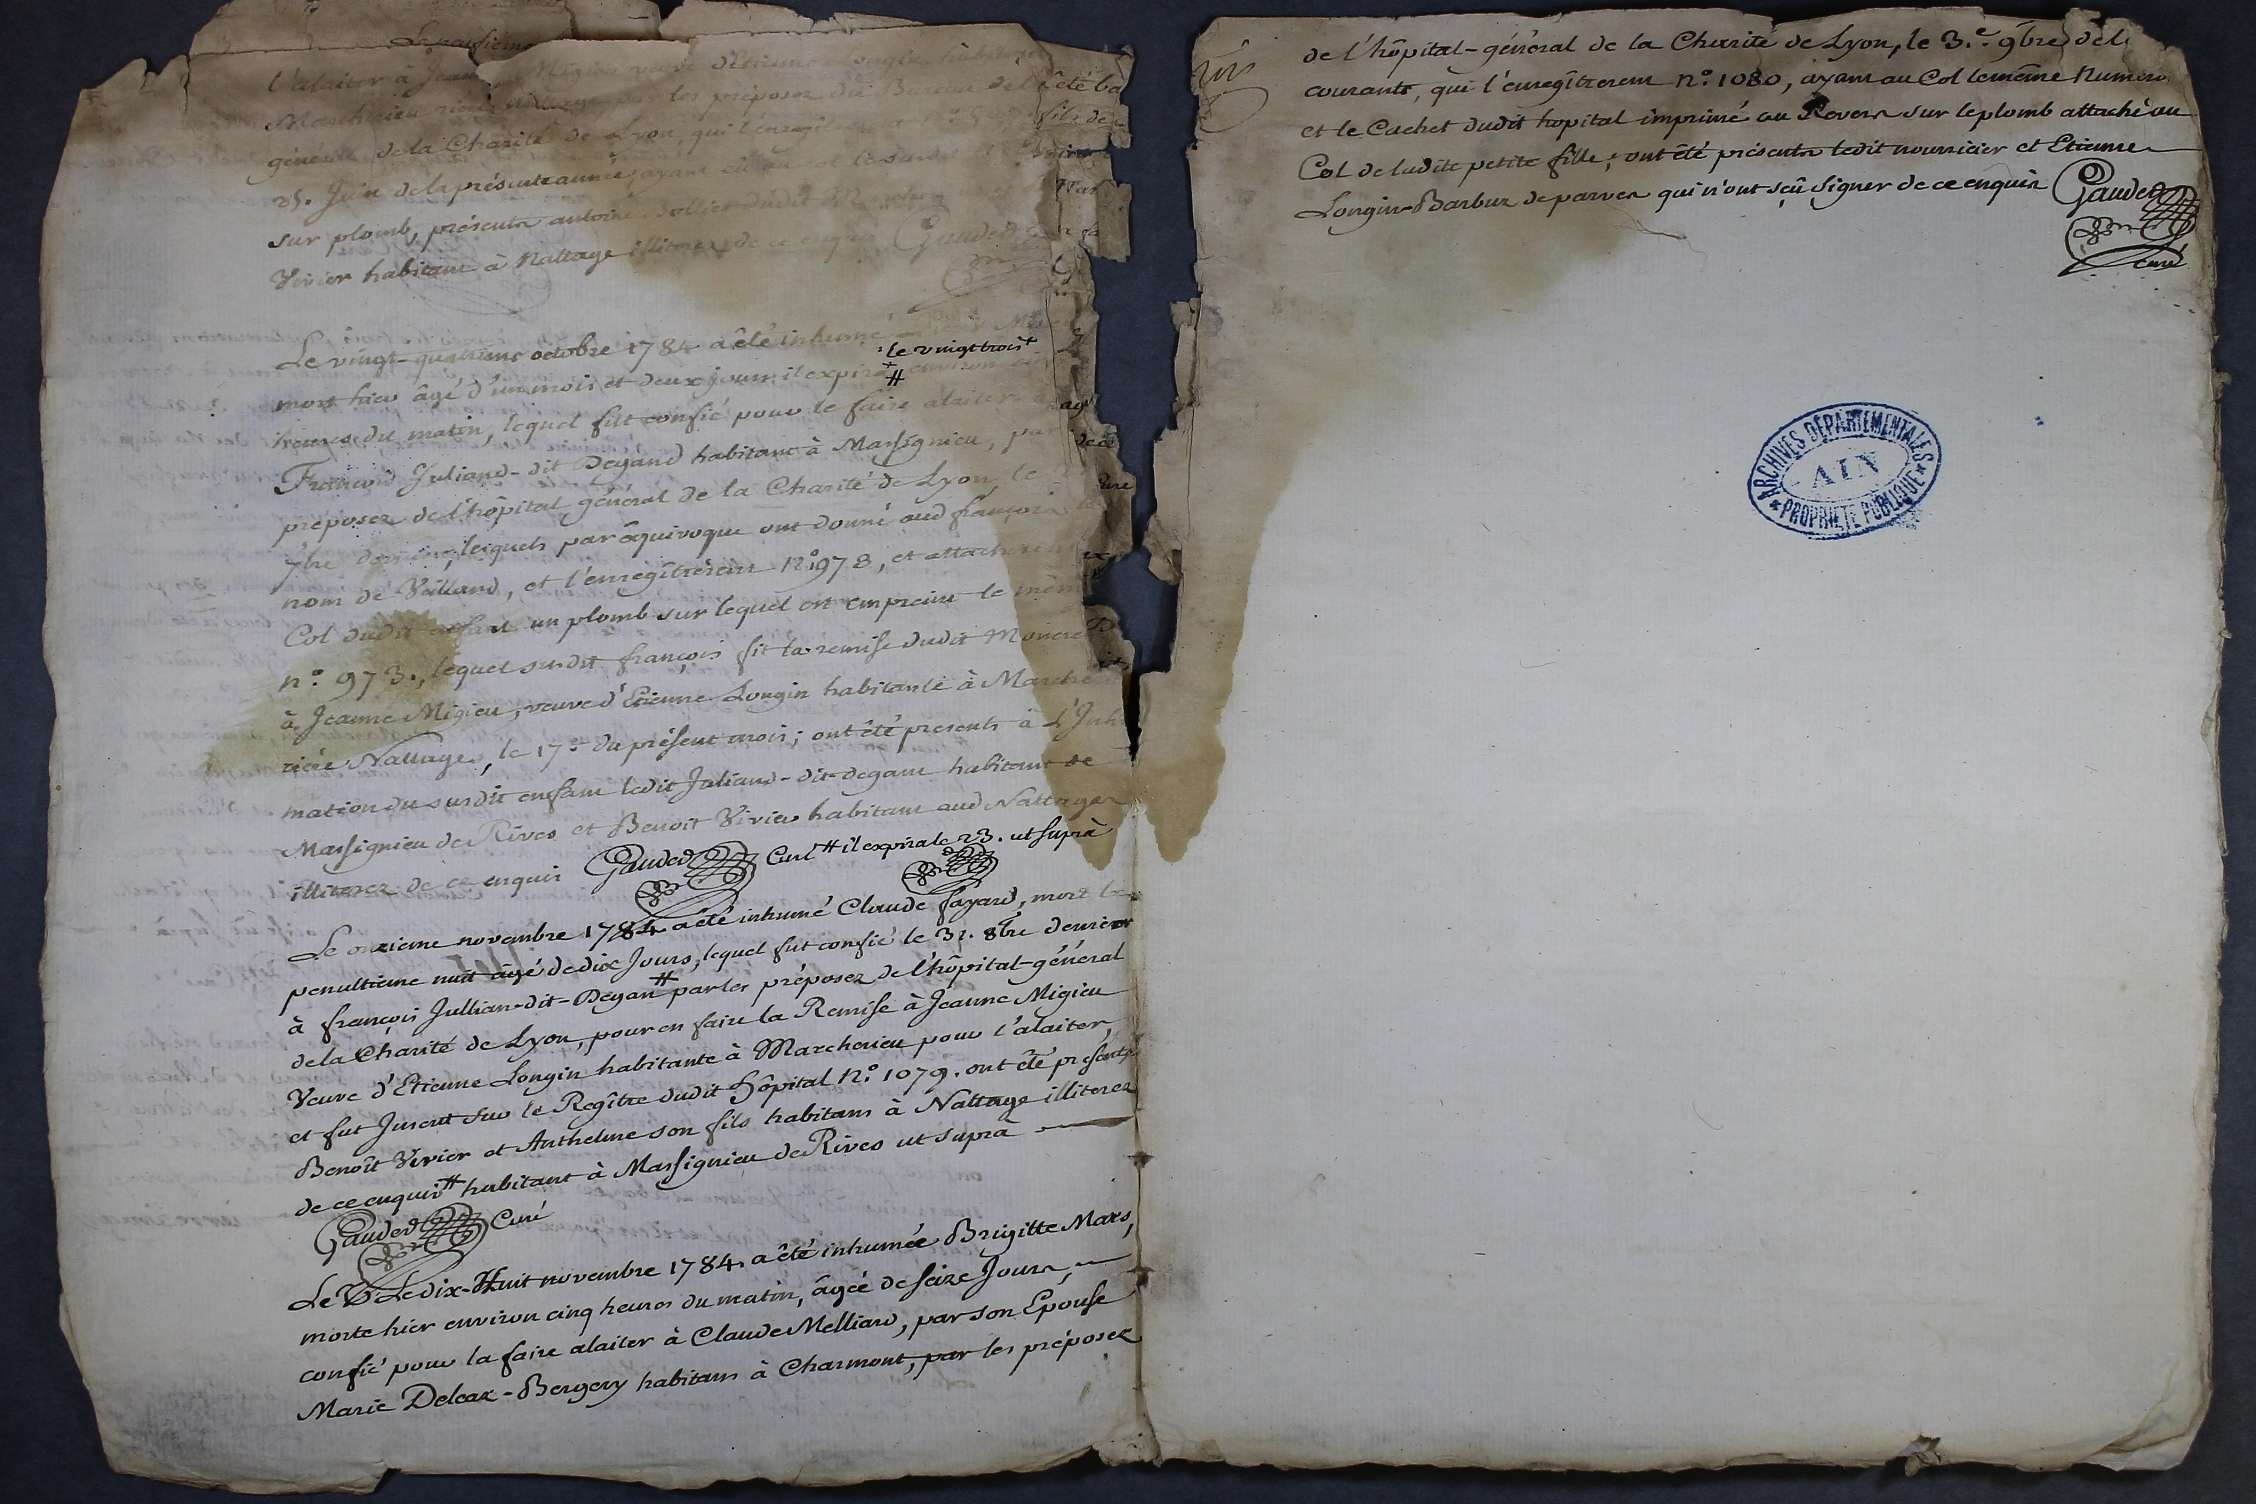 l'alaiter à Jeanne Migieu veuve d'Etienne Longin habitante
Marcherieu rière Nattage par les préposez du Bureau de l'
général de la Charité de Lyon qui l'enregîtrerent
25. Juin de la présente année, ayant
sur plomb, présents antoine dudit
Vivier habitant à Nattage illiterez de ce enquis Gauded
Le vingt-quatrieme octobre 1784 a été inhumé
mort hier âgé d'un mois et deux jours il expira environ
: le vingttrois
#
heures du matin, lequel fût confié pour le faire alaiter à
François Juliand-dit Degand habitant à Massignieu, par
préposez de l'hôpital général de la Charité de Lyon, le
7bre dernier, lesquels par équivoque ont donné aud françois le
nom de Vailland, et l'enregîtrèrent N.º 973, et attacherent
Col dudit enfant un plomb sur lequel est empreint le même
n.º 973., lequel susdit françois fit la remise dudit
à Jeanne Migieu, veuve d'Etienne Longin habitante à Marche
rieu Nattages, le 17.e du présent mois; ont été presents à l'Inhu
mation du susdit enfant ledit Juliand-dit-degant habitant de
Massignieu de Rives et Benoit Vivier habitant aud Nattages
illiterez de ce enquis Gauded Curé # il expira le 23. ut suprà
Le onzieme novembre 1784 a été inhumé Claude fayard, mort la
penultieme nuit âgé de dix Jours, lequel fut confié le 31. 8bre dernier
à françois Jullian-dit-Degan # par les préposez de l'hôpital-général
de la Charité de Lyon, pour en faire la Remise à Jeanne Migieu
Veuve d'Etienne Longin habitante à Marcherieu pour l'alaiter,
et fut Inscrit sur le Regître dudit hôpital N.º 1079. ont été presents
Benoît Vivier et Anthelme son fils habitans à Nattage illiterez
de ce enquis # habitant à Massignieu de Rives ut suprà
Gauded Curé
Le Ledix-Huit novembre 1784. a été inhumée Brigitte Mars,
morte hier environ cinq heures du matin, âgée de seize Jours,
confié pour la faire alaiter à Claude Melliard, par son Epouse
Marie Deleaz-Bergery habitans à Charmont, par les préposez
de l'hôpital-général de la Charité de Lyon, le 3.e 9bre del
courante, qui l'enregîtrerent n.º 1080, ayant au Col lemême Numero
et le Cachet dudit hopital imprimé au Revers sur leplomb attaché au
Col de ladite petite fille; ont été présents ledit nourricier et Etienne
Longin-Barbuz de parves qui n'ont sçû signer de ce enquis Gauded
curé
ARCHIVES DÉPARTEMENTALES
AIN
PROPRIÉTÉ PUBLIQUE